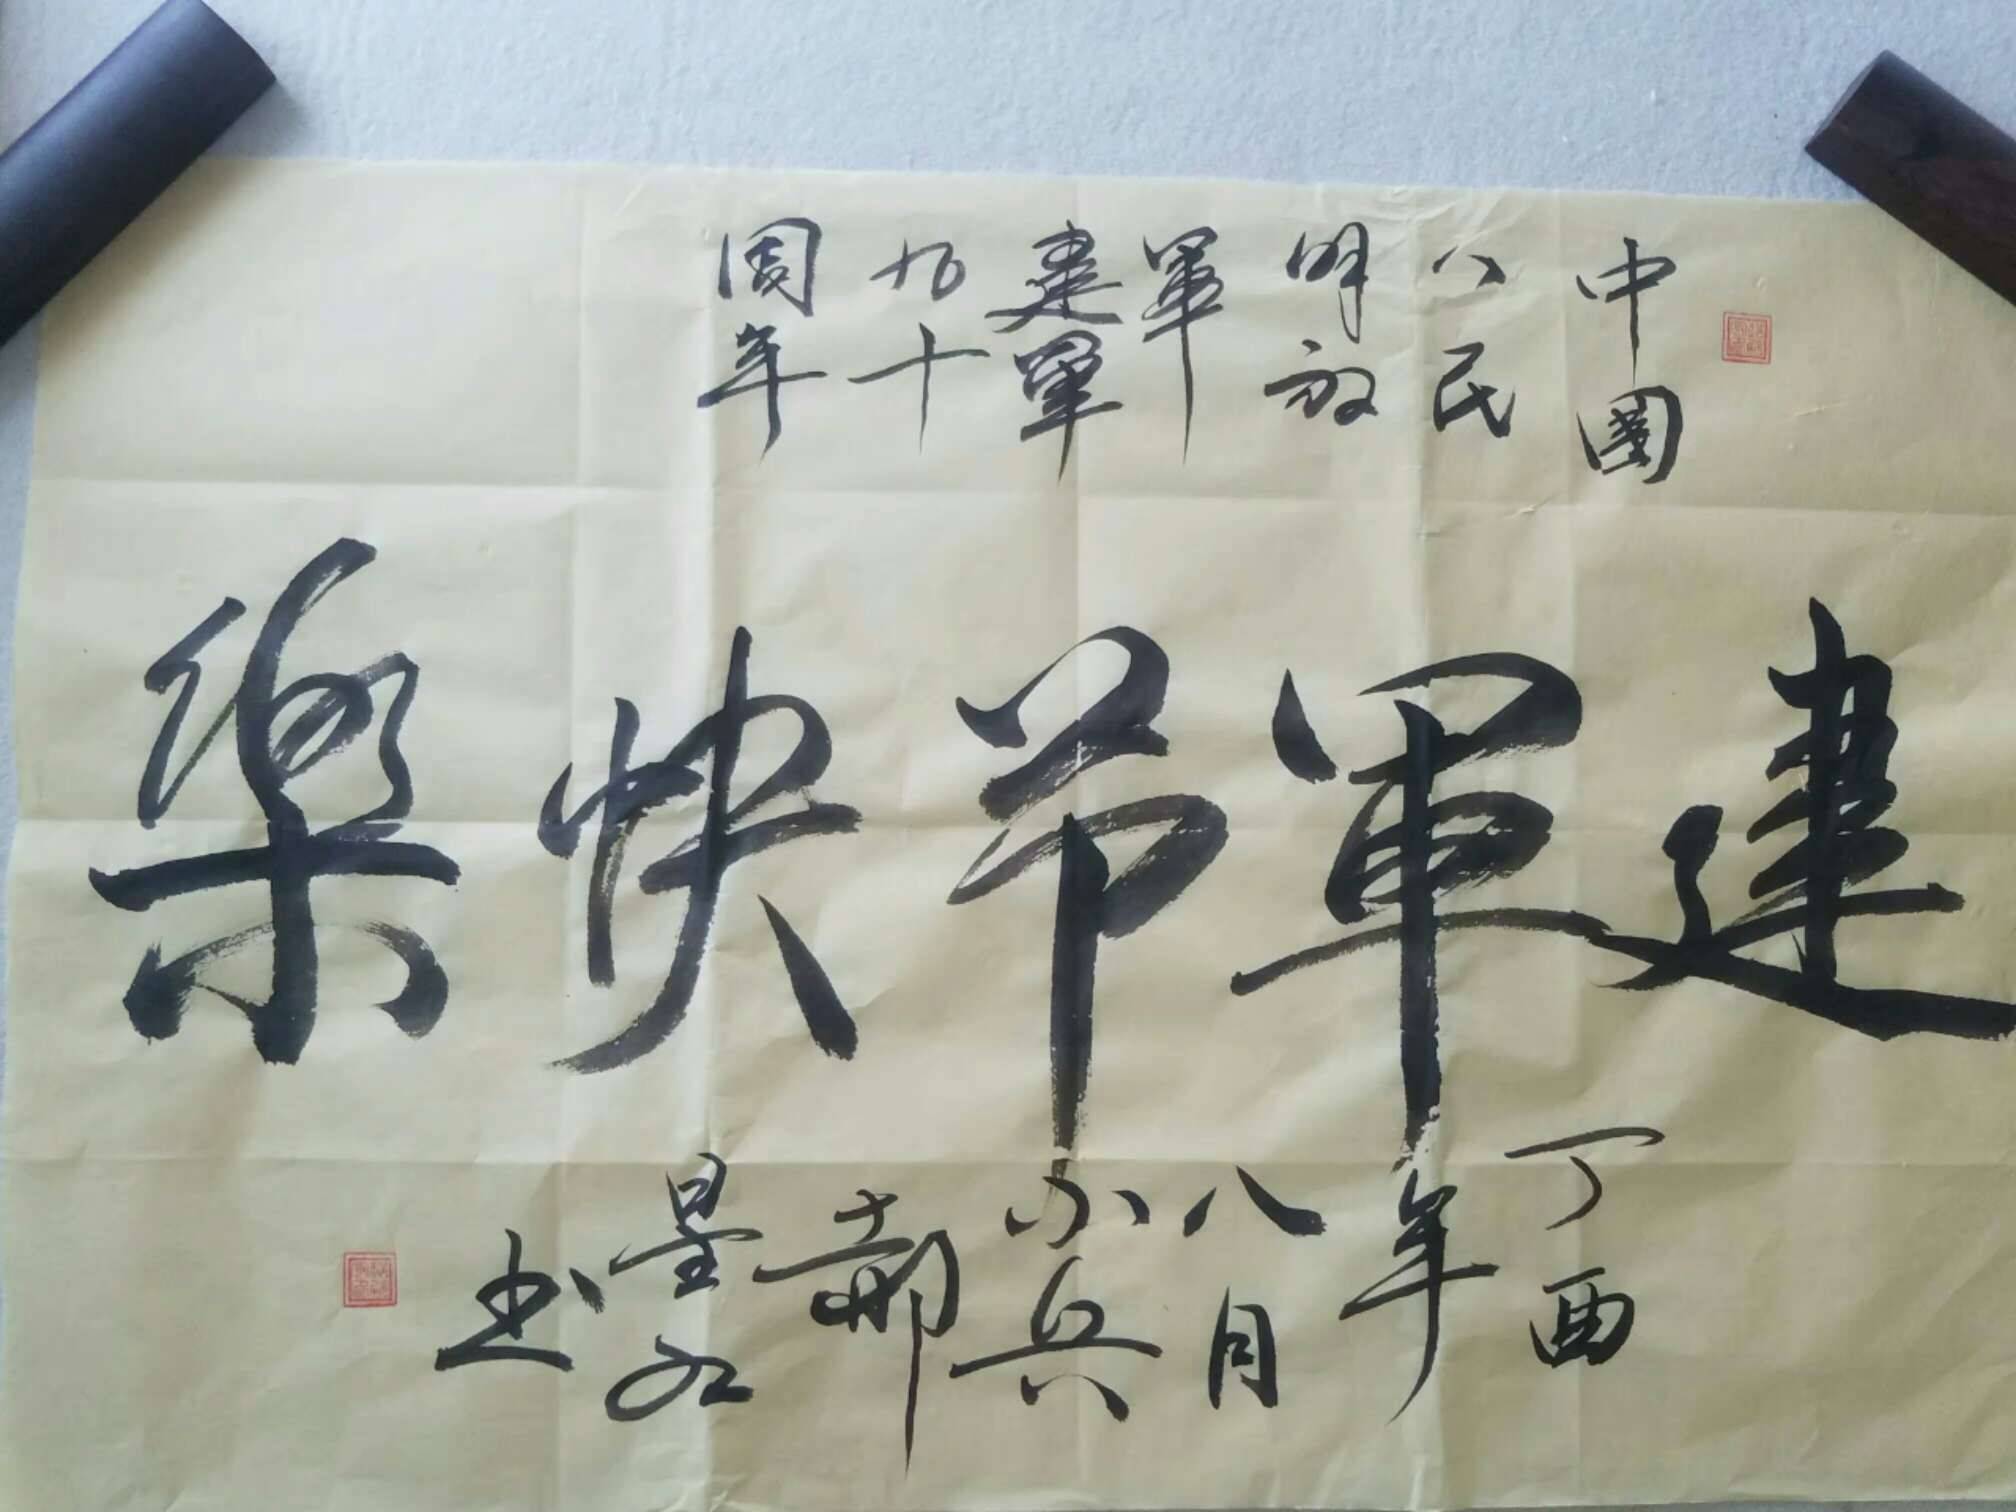 中國人民解放軍建軍九十周年
建軍节快樂
丁酉年八月小兵郝
书